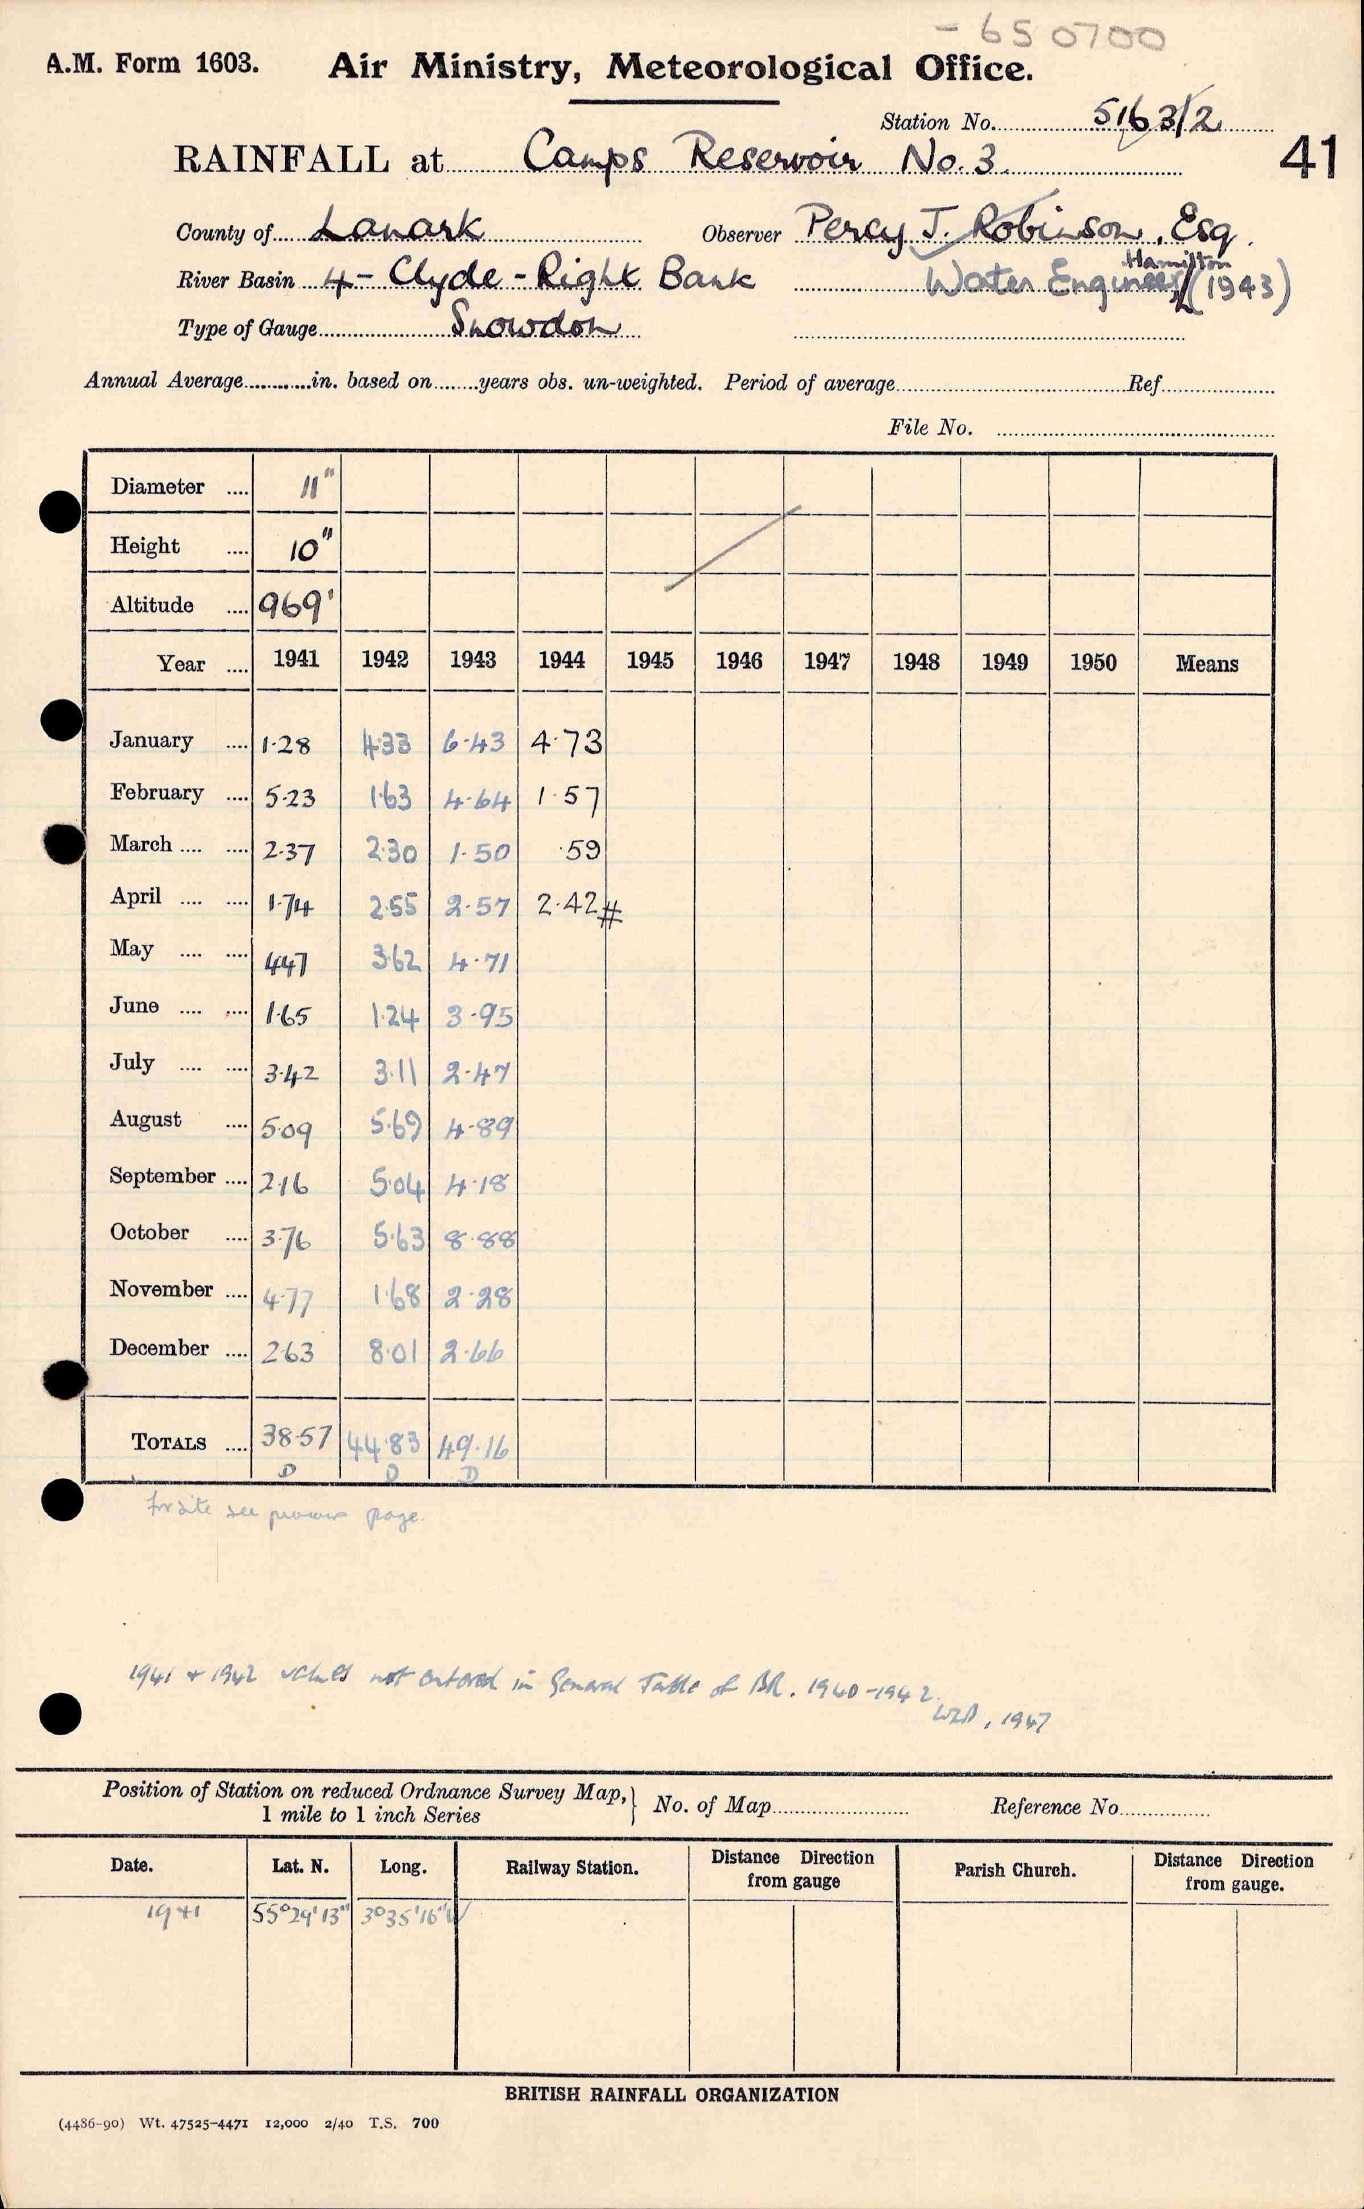 - 650700
A.M. Form 1603. Air Ministry, Meteorological Office.
Station No. 5163/2
RAINFALL at Camps Reservoir No. 3. 41
County of Lanark Observer Percy J. Robinson, Esq.
River Basin 4 - Clyde - Right Bank Water Engineer, Hamilton (1943)
Type of Gauge Snowdon
Annual Average in. based on years obs. un-weighted. Period of average Ref.
File No.
Diameter 11"
Height 10"
Altitude 969'
Year 1941 1942 1943 1944 1945 1946 1947 1948 1949 1950 Means
January 1.28 4.33 6.43 4.73
February 5.23 1.63 4.64 1.57
March 2.37 2.30 1.50 .59
April 1.74 2.55 2.57 2.42 #
May 4.47 3.62 4.71
June 1.65 1.24 3.95
July 3.42 3.11 2.47
August 5.09 5.69 4.89
September 2.16 5.04 4.18
October 3.76 5.63 8.88
November 4.77 1.68 2.28
December 2.63 8.01 2.66
TOTALS 38.57 44.83 49.16
D D D
For site see previous page.
1941 + 1942 values not entered in General Table of B.R. 1940-1942.
1947
Position of Station on reduced Ordnance Survey Map,} No. of Map Reference No.
1 mile to 1 inch Series
Date. Lat. N. Long. Railway Station. Distance Direction from gauge Parish Church. Distance Direction from gauge.
1941 55°29'13" 3°35'16"W
BRITISH RAINFALL ORGANIZATION
(4486-90) Wt. 47525-4471 12,000 2/40 T.S. 700